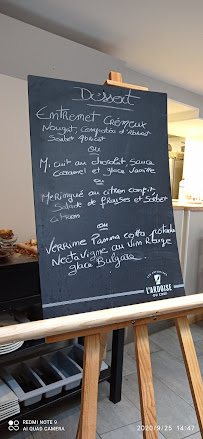 Dessert
Entremet Crémeux
Nougat, Compotée d'Abricot
Sorbet Abricot
ou
Mi cuit au chocolat, sauce
Caramel et glace Vanille
ou
Meringué au citron confit,
Salade de fraises et Sorbet
citron
ou
Verrine Panna cotta pistache
Nectavigne au Vin Rouge
glace Bulgare
L'ARDOISE
REDMI NOTE 9
AI QUAD CAMERA
2020/9/25 14:47